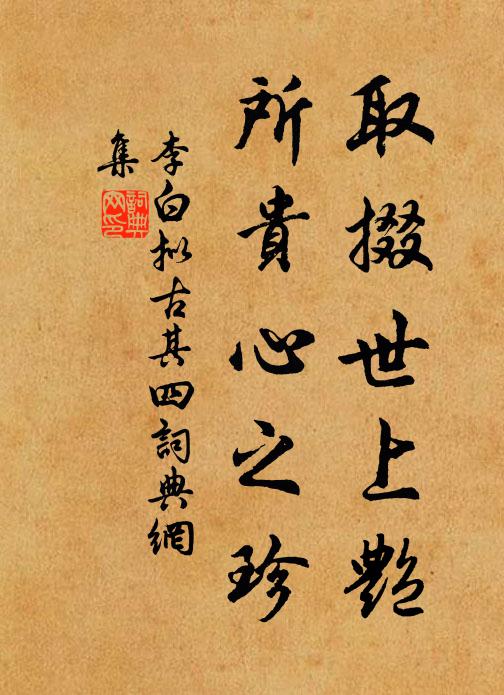 取掇世上艷
所貴心之珍
李白拟古其四詞典網
集
詞典
网印